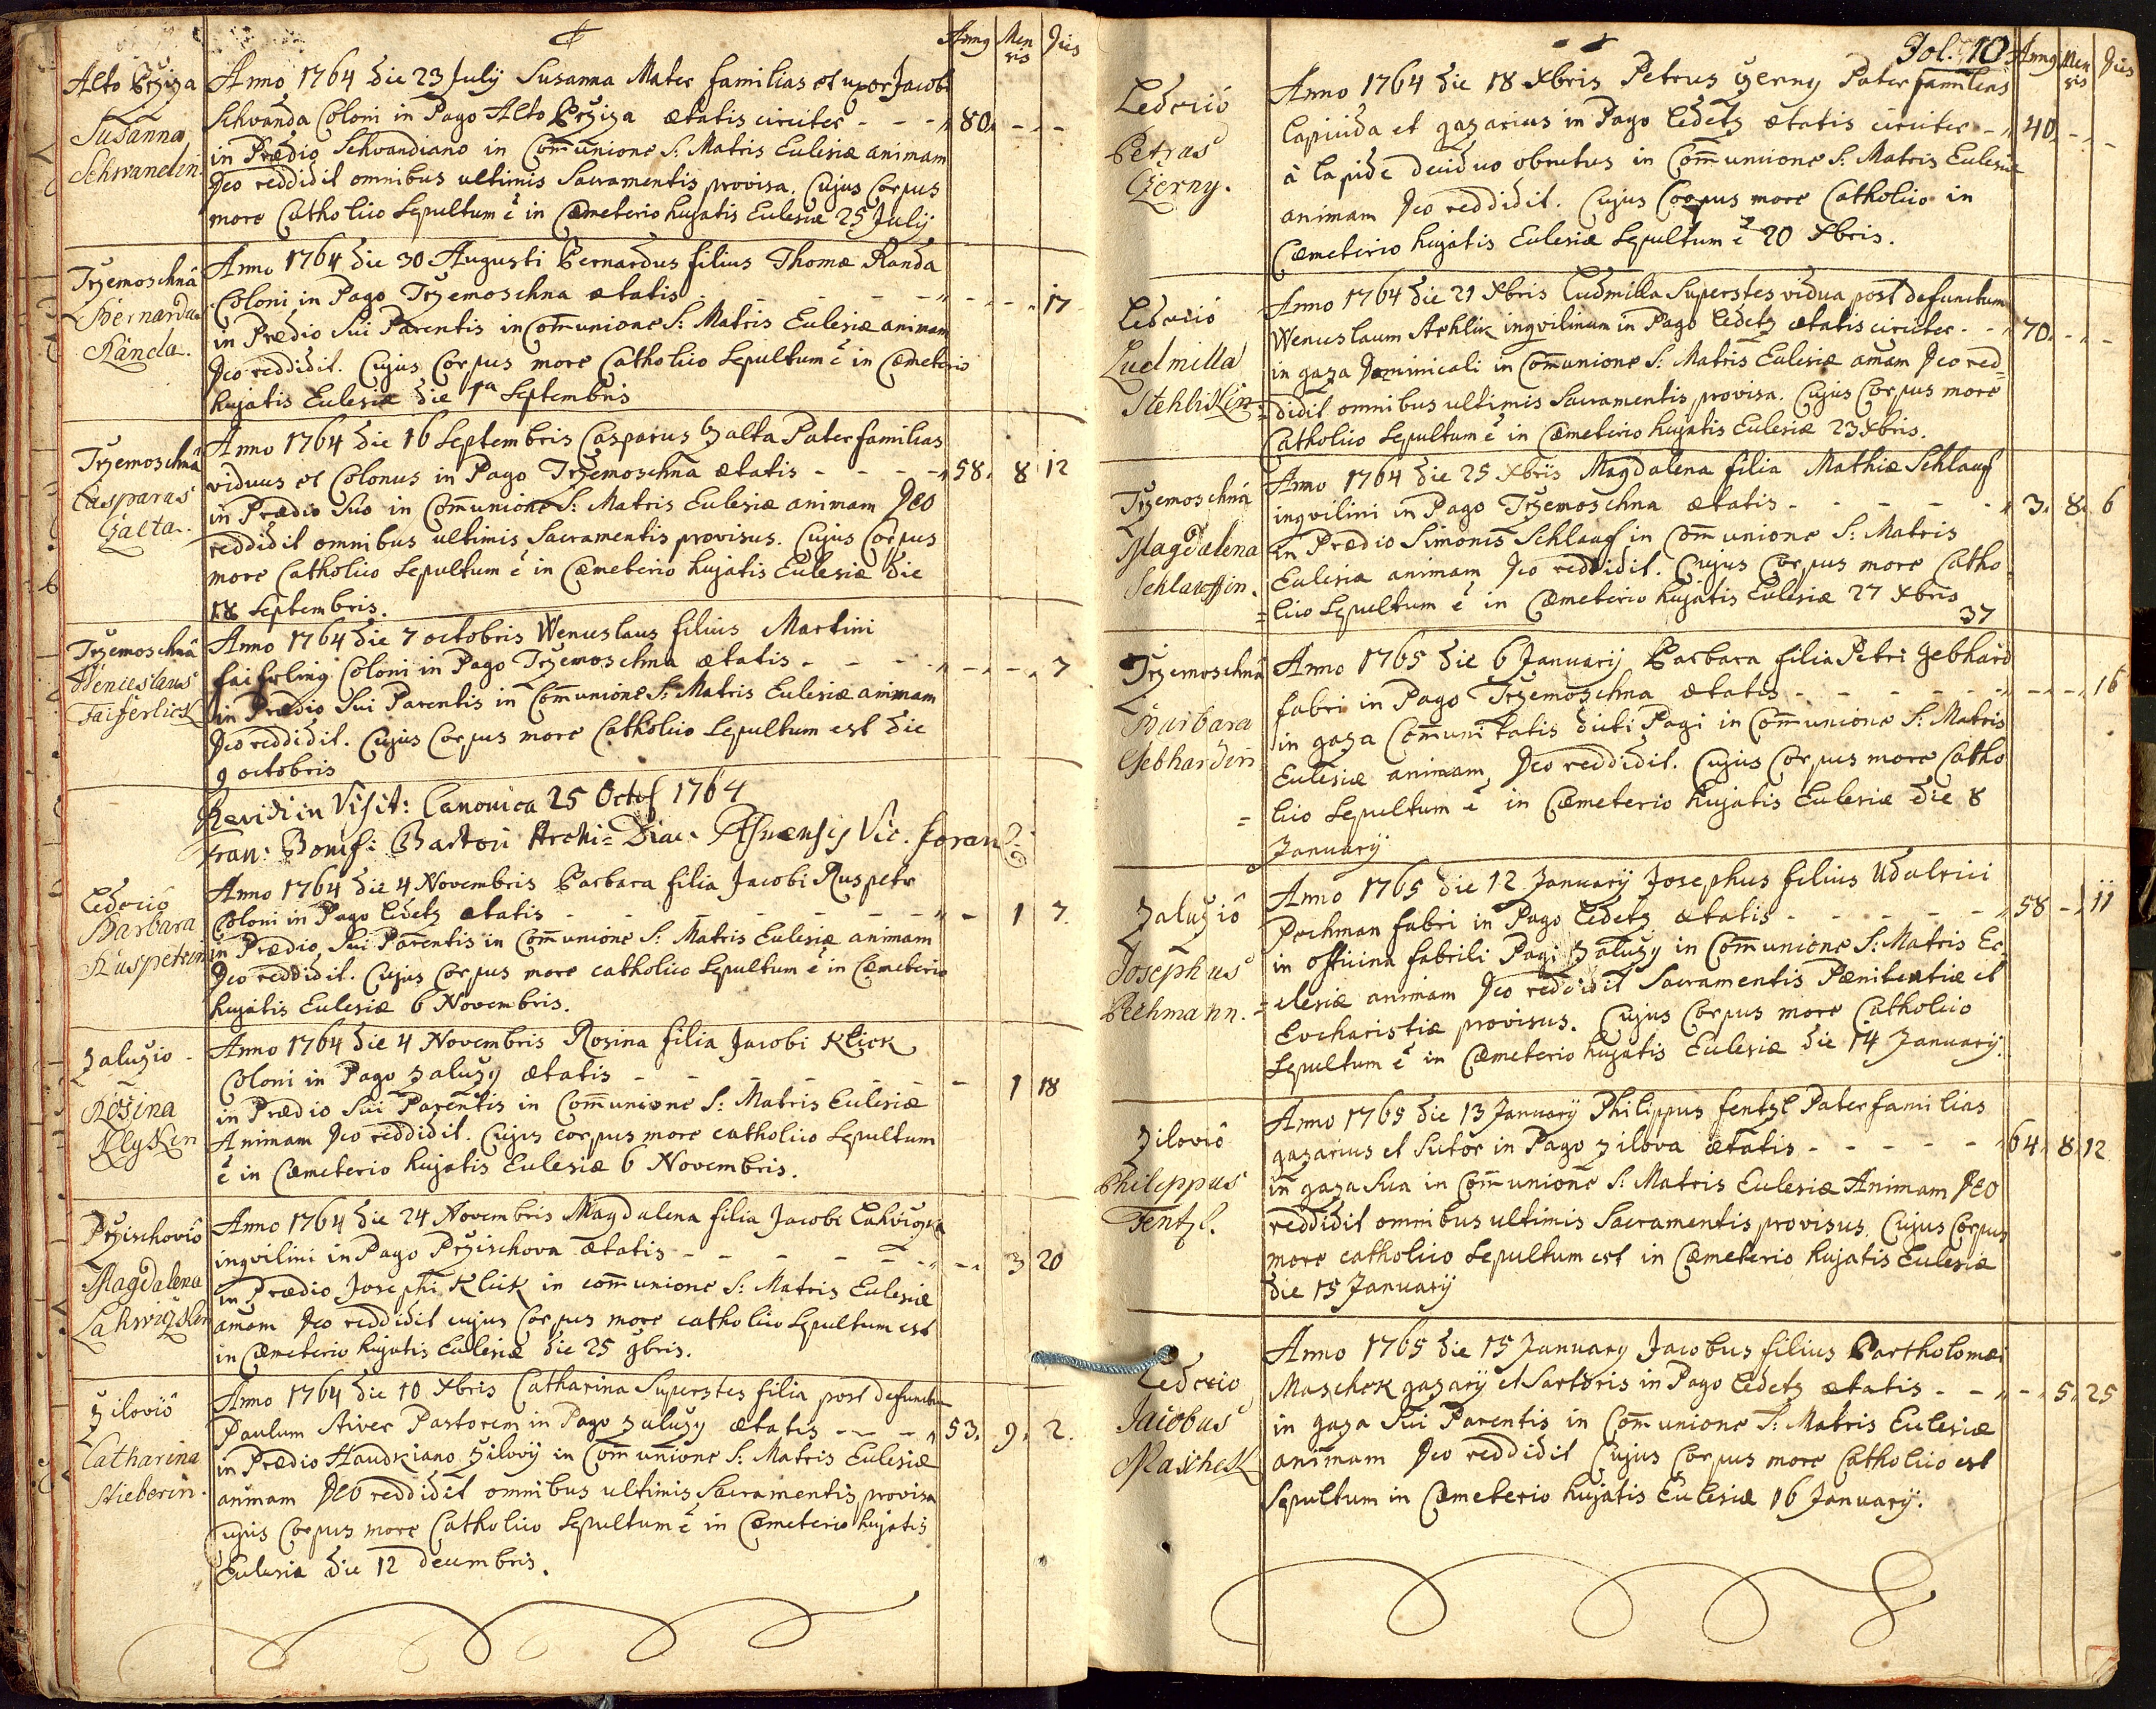 Anno Men Dies
sis
Alto Brziza
Susanna
Schwandin.
Anno 1764 die 23 July Susanna Mater familias et uxor Jacobi
Schvanda Coloni in Pago Alto Brziza ætatis circiter - - - 80. - -
in Prædio Schvandiano in Com̄unione S: Matris Eclesiæ animam
Deo reddidit omnibus ultimis Sacramentis provisa. Cujus Corpus
more Catholico Sepultum ē in Cæmeterio hujatis Eclesiæ 25 July
Trzemoschnâ
Bernardus
Randa.
Anno 1764 die 30 Augusti Bernardus filius Thomæ Randa
Coloni in Pago Trzemoschna ætatis - - - - - 17
in Prædio Sui Parentis in Com̄unione S: Matris Eclesiæ animam
Deo reddidit. Cujus Corpus more Catholico Sepultum ē in Cæmeterio
hujatis Eclesiæ die 1ma Septembris
Trzemoschnâ
Casparus
Galta.
Anno 1764 die 16 Septembris Casparus Galta Pater familias
viduus et Colonus in Pago Trzemoschna ætatis - - - - 58. 8 12
in Prædio Suo in Com̄unione S: Matris Eclesiæ animam Deo
reddidit omnibus ultimis Sacramentis provisus. Cujus Corpus
more Catholico Sepultum ē in Cæmeterio hujatis Eclesiæ die
18 Septembris.
Trzemoschnâ
Wenceslaus
Faiferlick
Anno 1764 die 7 octobris Wenceslaus filius Martini
faiferling Coloni in Pago Trzemoschna ætatis - - - - - 7
in Prædio Sui Parentis in Com̄unione S: Matris Eclesiæ animam
Deo reddidit. Cujus Corpus more Catholico Sepultum est die
9 octobris
Revidi in Visit: Canonica 25 Octob 1764
Fran: Bonif: Archi=Diac: Plsnensis Vic. foran
Ledecio
Barbara
Ruspetrin
Anno 1764 die 4 Novembris Barbara filia Jacobi Ruspetr
Coloni in Pago Ledetz ætatis - - - - - - 1 7.
in Prædio Sui Parentis in Com̄unione S: Matris Eclesiæ animam
Deo reddidit. Cujus Corpus more catholico Sepultum ē in Cæmeterio
hujatis Eclesiæ 6 Novembris.
Zaluzio -
Rosina
Klyken
Anno 1764 die 4 Novembris Rosina filia Jacobi Klick
Coloni in Pago Zaluzy ætatis - - - - - - 1 18
in Prædio Sui Parentis in Com̄unione S: Matris Eclesiæ
Animam Deo reddidit. Cujus corpus more catholico Sepultum
ē in Cæmeterio hujatis Eclesiæ 6 Novembris.
Przischoviô
Magdalena
Anno 1764 die 24 Novembris Magdalena filia Jacobi
inqvilini in Pago Przischova ætatis - - - - - 3 20
in Prædio Josephi Klick in com̄unione S: Matris Eclesiæ
amam Deo reddidit cujus Corpus more catholico Sepultum est
in Cæmeterio hujatis Eclesiæ die 25 9bris.
Ziloviô
Catharina
Stieberin.
Anno 1764 die 10 Xbris Catharina Superstes filia post defunctum
Paulum Pastorem in Pago Zaluzy ætatis - - - 53. 9. 2.
in Prædio Haudkiano Zilovy in Com̄unione S: Matris Eclesiæ
animam Deo reddidit omnibus ultimis Sacramentis provisa
cujus Corpus more Catholico Sepultum ē in Cæmeterio hujatis
Eclesiæ die 12 decembris.
Fol: 10. Anno Men Dies
sis
Ledeciô
Petrus
Czerny.
Anno 1764 die 18 Xbris Petrus Czerny Pater familias
lapicida et gazarius in Pago Ledetz ætatis circiter - - 40. - -
à lapide deciduo obrutus in Com̄unione S: Matris Eclesiæ
animam Deo reddidit. Cujus Corpus more Catholico in
Cæmeterio hujatis Eclesiæ Sepultum ē 20 Xbris.
Ledeciô
Ludmilla
Stehliken
Anno 1764 die 21 Xbris Ludmilla Superstes vidua post defunctum
Wenceslaum Stehlik inqvilinum in Pago Ledetz ætatis circiter - - 70. - -
in gaza Dominicali in Com̄unione S: Matris Eclesiæ amam Deo red=
=didit omnibus ultimis Sacramentis provisa. Cujus Corpus more
Catholico Sepultum ē in Cæmeterio hujatis Eclesiæ 23 Xbris.
Trzemoschnâ
Magdalena
Schlauffin.
Anno 1764 die 25 Xbris Magdalena filia Mathiæ Schlauf
inqvilini in Pago Trzemoschna ætatis - - - - - 3. 8. 6
in Prædio Simonis Schlauf in Com̄unione S: Matris
Eclesiæ animam Deo reddidit. Cujus Corpus more Catho=
=lico Sepultum ē in Cæmeterio hujatis Eclesiæ 27 Xbris
37
Trzemoschnâ
Barbara
Gebhardin
Anno 1765 die 6 January Barbara filia Petri Gebhard
fabri in Pago Trzemoschna ætatis - - - - - - 16
in gaza Com̄unitatis dicti Pagi in Com̄unione S: Matris
Eclesiæ animam Deo reddidit. Cujus Corpus more Catho
= lico Sepultum ē in Cæmeterio hujatis Eclesiæ die 8
January
Zaluziô
Josephus
Pechmann.
Anno 1765 die 12 January Josephus filius Udalrici
Pechman fabri in Pago Ledetz ætatis - - - - - 58 - 11
in officina fabrili Pagi Zaluzy in Com̄unione S: Matris Ec=
=clesiæ animam Deo reddidit Sacramentis Pænitentiæ et
Evcharistiæ provisus. Cujus Corpus more Catholico
Sepultum ē in Cæmeterio hujatis Eclesiæ die 14 January.
Ziloviô
Philippus
Fentzl.
Anno 1765 die 13 January Philippus fentzl Pater familias
gazarius et Sutor in Pago Zilova ætatis - - - - - 64. 8. 12
in gaza Sua in Com̄unione S: Matris Eclesiæ Animam Deo
reddidit omnibus ultimis Sacramentis provisus. Cujus Corpus
more catholico Sepultum est in Cæmeterio hujatis Eclesiæ
die 15 January
Ledecio
Jacobus
Maschek
Anno 1765 die 15 January Jacobus filius Bartholomæi
Maschek gazarij et Sartoris in Pago Ledetz ætatis - - - - 5. 25
in gaza Sui Parentis in Com̄unione S: Matris Eclesiæ
animam Deo reddidit Cujus Corpus more Catholico est
Sepultum in Cæmeterio hujatis Eclesiæ 16 January.